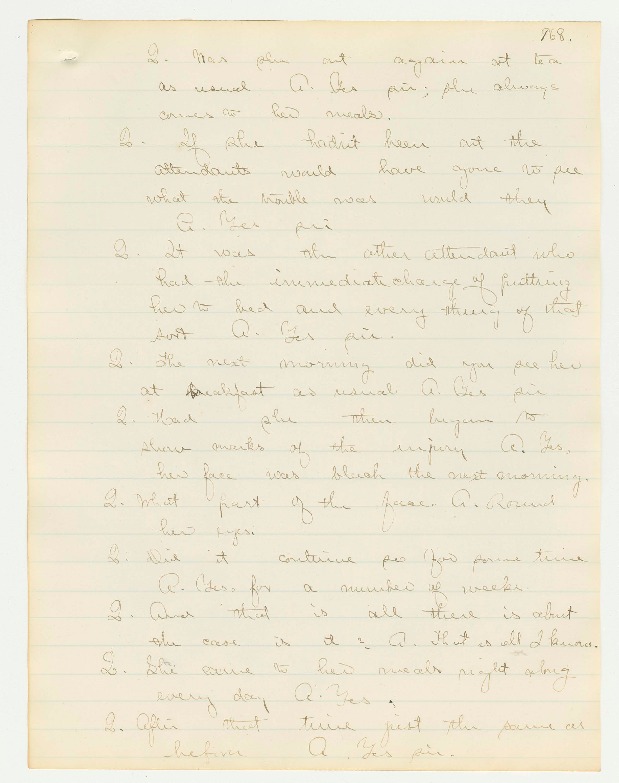 768.
Q. Was she out again at tea
as usual A. Yes sir; she always
comes to her meals.
Q. If she hadn't been out the
attendants would have gone to see
what the trouble was would they
A. Yes sir
Q. It was the other attendant who
had the immediate charge of putting
her to bed and every thing of that
sort A. Yes sir.
Q. The next morning did you see her
at breakfast as usual A. Yes sir
Q. Had she then begun to
show marks of the injury A. Yes,
her face was black the next morning.
Q. What part of the face. A. Round
her eyes.
Q. Did it continue so for some time
A. Yes, for a number of weeks
Q. And that is all there is about
the case is it? A. That is all I know.
Q. She came to her meals right along
every day A. Yes.
Q. After that time just the same as
before A. Yes sir.